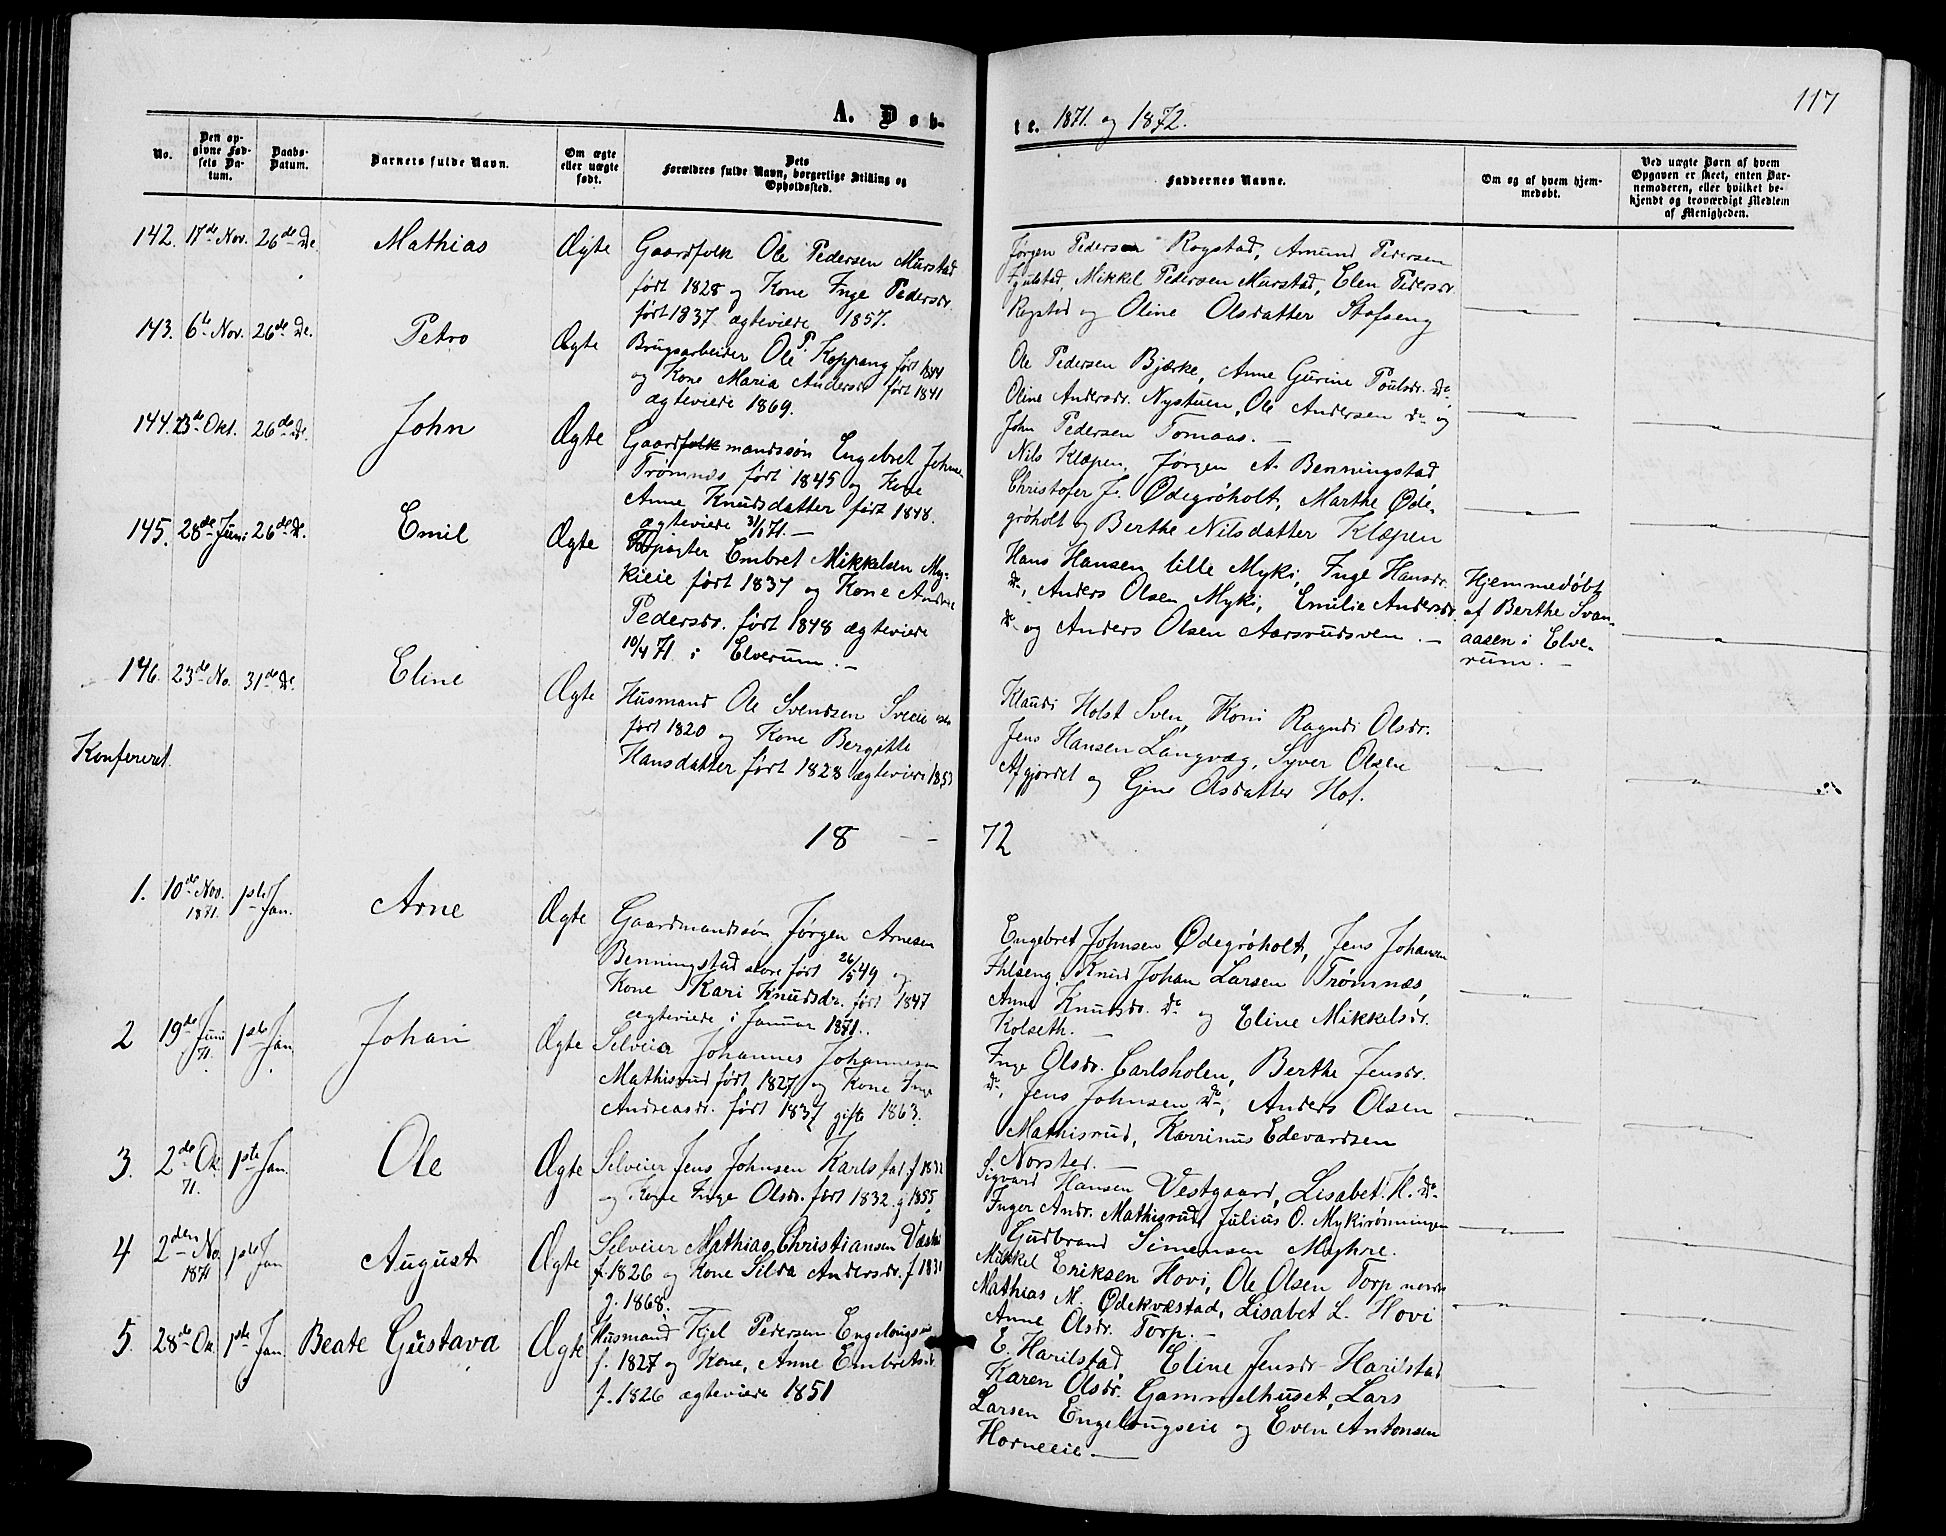 117
A. Døb-
te. 1871. og 1872.
No.
Den op-
givne Fød-
sels Da-
tum.
Daabs-
Datum.
Barnets fulde Navn.
Om ægte
eller uægte
født.
Dets
Forældres fulde Navn, borgerlige Stilling og
Opholdssted.
Faddernes Navne.
Om og af hvem hjem-
medøbt.
Ved uægte Børn af hvem
Opgaven er skeet, enten Bar-
nemoderen, eller hvilket be-
kjendt og troværdigt Medlem
af Menigheden.
142. 17de Nov. 26de De. Mathias Ægte
Gaardfolk Ole Pedersen Murstad
født 1828 og Kone Inge Pedersdr.
født 1837 ægteviede 1857.
Jørgen Pedersen Rogstad, Amund Pedersen
Fjulstad, Mikkel Pedersen Murstad, Elen Pedersdr.
Rogstad og Oline Olsdatter Stafseng
143. 6te Nov. 26de De. Petro Ægte
Brugsarbeider Ole P. Koppang født 1844
og Kone Maria Andersdr født 1841
ægteviede 1869.
Ole Pedersen Bjærke, Anne Gurine Poulsdr. do,
Oline Andersdr. Nystuen, Ole Andersen do og
John Pedersen Tomaas.
144. 23de Okt. 26de De. John Ægte
Gaardfolk mandssøn Engebret Johnsen
Trømnæs født 1845 og Kone
Anne Knudsdatter født 1848.
ægteviede 31/1 71.
Nils Klæpen, Jørgen A. Benningstad,
Christofer J. Ødegrøholt, Marthe Øde-
grøholt og Berthe Nilsdatter Klæpen
145. 28de Juni 26de De. Emil Ægte
Embret Mikkelsen My-
kieie født 1837 og Kone
Pedersdr. født 1848 ægteviede
10/4 71 i Elverum.
Hans Hansen lille Myki, Inge Hansdr.
do, Anders Olsen Myki, Emilie Andersdr.
do og Anders Olsen Aarsrudsven.
Hjemmedøbt
af Berthe Svan-
aasen i Elve-
rum.
146. 23de No. 31de De. Eline Ægte
Husmand Ole Svendsen Sveeie
født 1820 og Kone Bergitte
Hansdatter født 1828 ægteviede 1853
Klaudi Holst Sven, Koni Ragndi Olsdr.
Jens Hansen Langvæg, Syver Olsen
Afgjordet og Gine Olsdatter Hof.
Konfereret.
18 — 72
1. 10de Nov. 1871. 1ste Jan. Arne Ægte
Gaardmandssøn Jørgen Arnesen
Benningstad store født 26/5 49 og
Kone Kari Knudsdr. født 1847
ægteviede i Januar 1871.
Engebret Johnsen Ødegrøholt, Jens Johansen
Ihlseng, Knud Johan Larsen Trømnæs,
Anne Knutsdr. do og Eline Mikkelsdr.
Kolseth.
2 19de Juni 71. 1ste Jan. Johan Ægte
Selveier Johannes Johannesen
Mathisrud født 1827 og Kone Inge
Andreasdr. født 1837 gifte 1863.
Inge Olsdr. Carlsholen, Berthe Jensdr.
do, Jens Johnsen do, Anders Olsen
Mathisrud, Karrinus Edevardsen
Norsted.
3. 2de Ok. 71. 1ste Jan. Ole Ægte
Selveier Jens Johnsen Karlstad f. 1832
og Kone Inge Olsdr. født 1832 g. 1855.
Sigvard Hansen Vestgaard, Lisabet H. do
Inger Andr. Mathisrud, Julius O. Mykirønningen
Gudbrand Simensen Myhre.
4 2den No. 1871 1ste Jan August Ægte
Selveier Mathias Christiansen
f. 1826 og Kone Silda Andersdr. f 1831
g. 1868.
Mikkel Eriksen Hovi, Ole Olsen Torp nordre
Mathias M. Ødekvæstad, Lisabet L. Hovi
Anne Olsdr. Torp.
5. 28de Ok. 1ste Jan Beate Gustava Ægte
Husmand Kjel Pedersen Engelougseie
f. 1827 og Kone, Anne Embretsdr.
f. 1826 ægteviede 1851
E. Harilstad, Eline Jensdr Harilstad
Karen Olsdr. Gammelhuset, Lars
Larsen Engelougseie og Even Antonsen
Horneeie